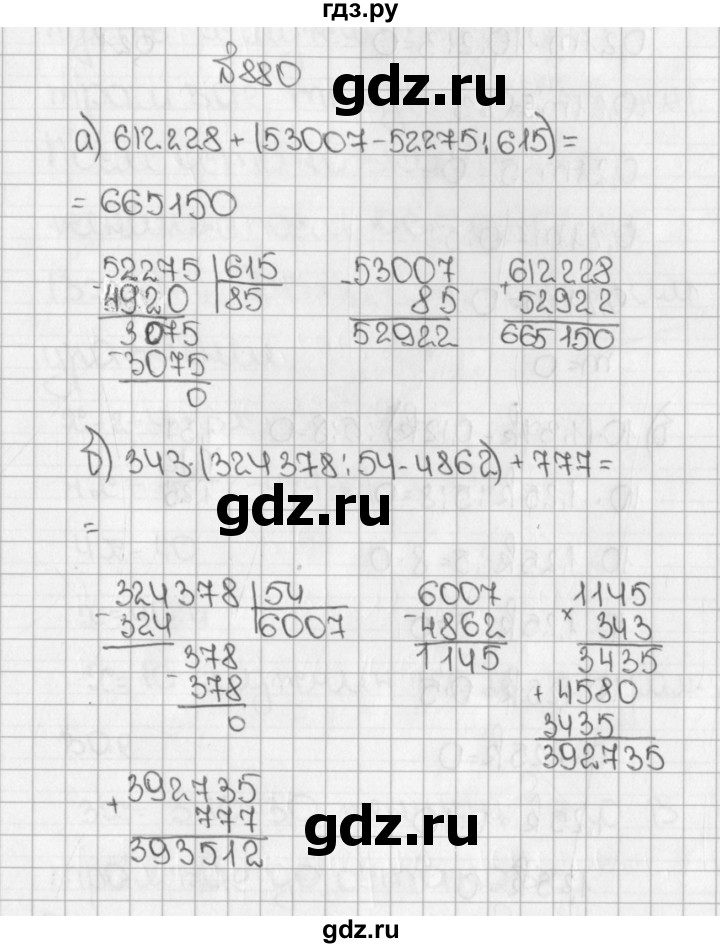 гдз.ру
№880
gdz.ru
а) 612228 + (53007 - 52275 : 615) =
= 665150
52275 | 615
- 4920 | 85
3075
- 3075
0
- 53007
85
52922
+ 612228
52922
665150
б) 343 · (324378 : 54 - 4862) + 777 =
gdz.ru
=
324378 | 54
- 324 | 6007
378
- 378
0
6007
- 4862
1145
1145
× 343
3435
+ 4580
3435
392735
+ 392735
777
393512
gdz.ru
gdz.ru